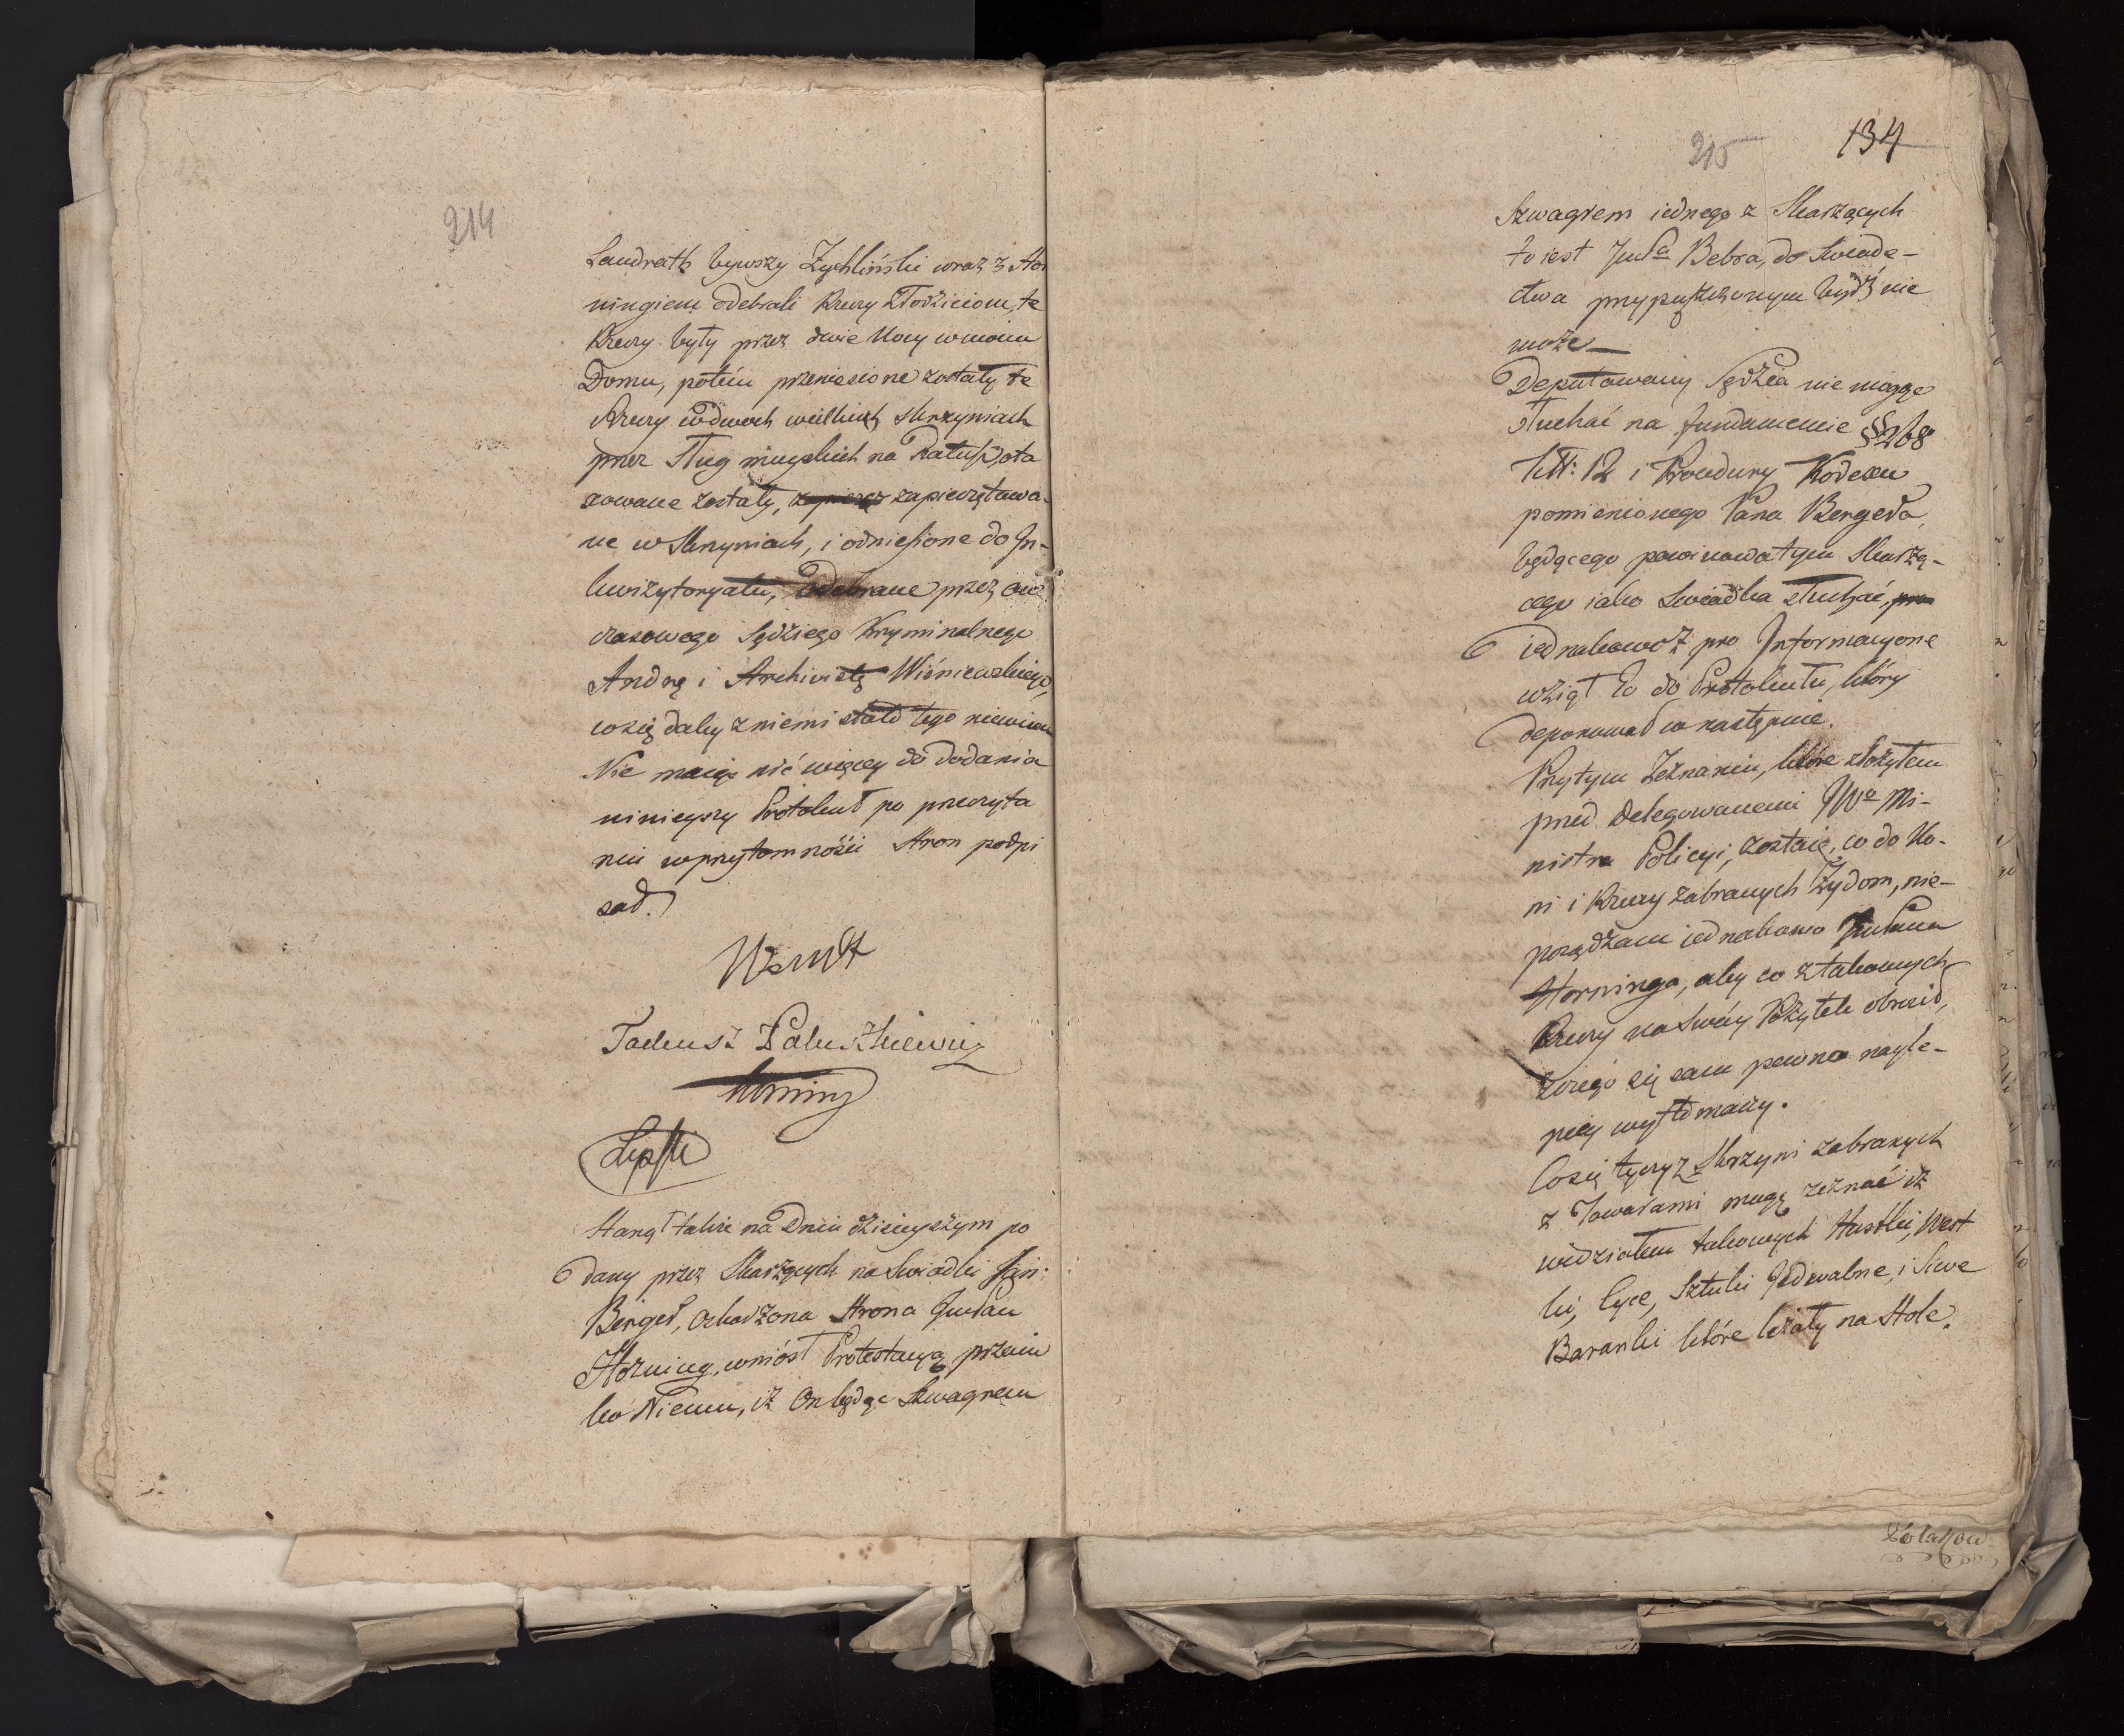 214
Landrath bywszy Zychliński wraz z Hor
ningiem odebrali Rzeczy Złodzieiom, te
Rzeczy były przez dwie Nocy w moim
Domu, potém przeniesione zostały te
Rzeczy w dwoch wielkich skrzyniach
przez Sług mieyskich na Ratusz, ota
xowane zostały, zapieczętowa-
ne w Skrzyniach, i odniesione do In-
kwizytoryatu, odebrane przez ów
czasowego Sędziego Kryminalnego
Andrę i Archiwistę Wiśniewskiego,
co się daley z niemi stało tego niewiem
Nie maiąc nić więcey do dodania
ninieyszy Protokuł po przeczyta
niu w przytomności Stron podpi
sał.
Tadeusz Paluszkiewicz
Horning
Lipski
Stanął także na Dniu dzisieyszym po
dany przez Skarżących na Swiadki Jan
Berger, oskarżona Strona Jmć Pan
Horning, wniósł Protestacyą przeciw
ko Niemu, iż On będąc Szwagrem
215
134
Szwagrem iednego z Skarżących
to iest Jmć Pa Bebra, do Swiade-
ctwa przypuszczonym bydź nie
może
Deputowany Sędzia nie mogąc
słuchać na fundamencie §§ 268
Titt: 12 i Procedury Kodexu
pomienionego Pana Bergera,
będącego powinowatym Skarżą-
cego iako Swiadka słuchać,
iednakowoż pro Informacyone
wziął Go do Protokułu, który
deponował co następuie.
Przytym Zeznaniu, które złożyłem
przed Delegowanemi JWo Mi-
nistra Policyi, zostaię, co do Ko-
ni i Rzeczy zabranych Żydom, nie-
posądzam iednakowo Jmć Pana
Horninga, aby co z takowych
Rzeczy na Swóy Pożytek obrócił,
z czego się sam pewno nayle-
piey wytłomaczy.
Co się tyczy z Skrzyni zabranych
z Towarami mogę zeznać iż
widziałem takowych Chustki, West
ki, Cyce, Sztuki Jedwabne, i Siwe
Baranki które leżały na Stole.